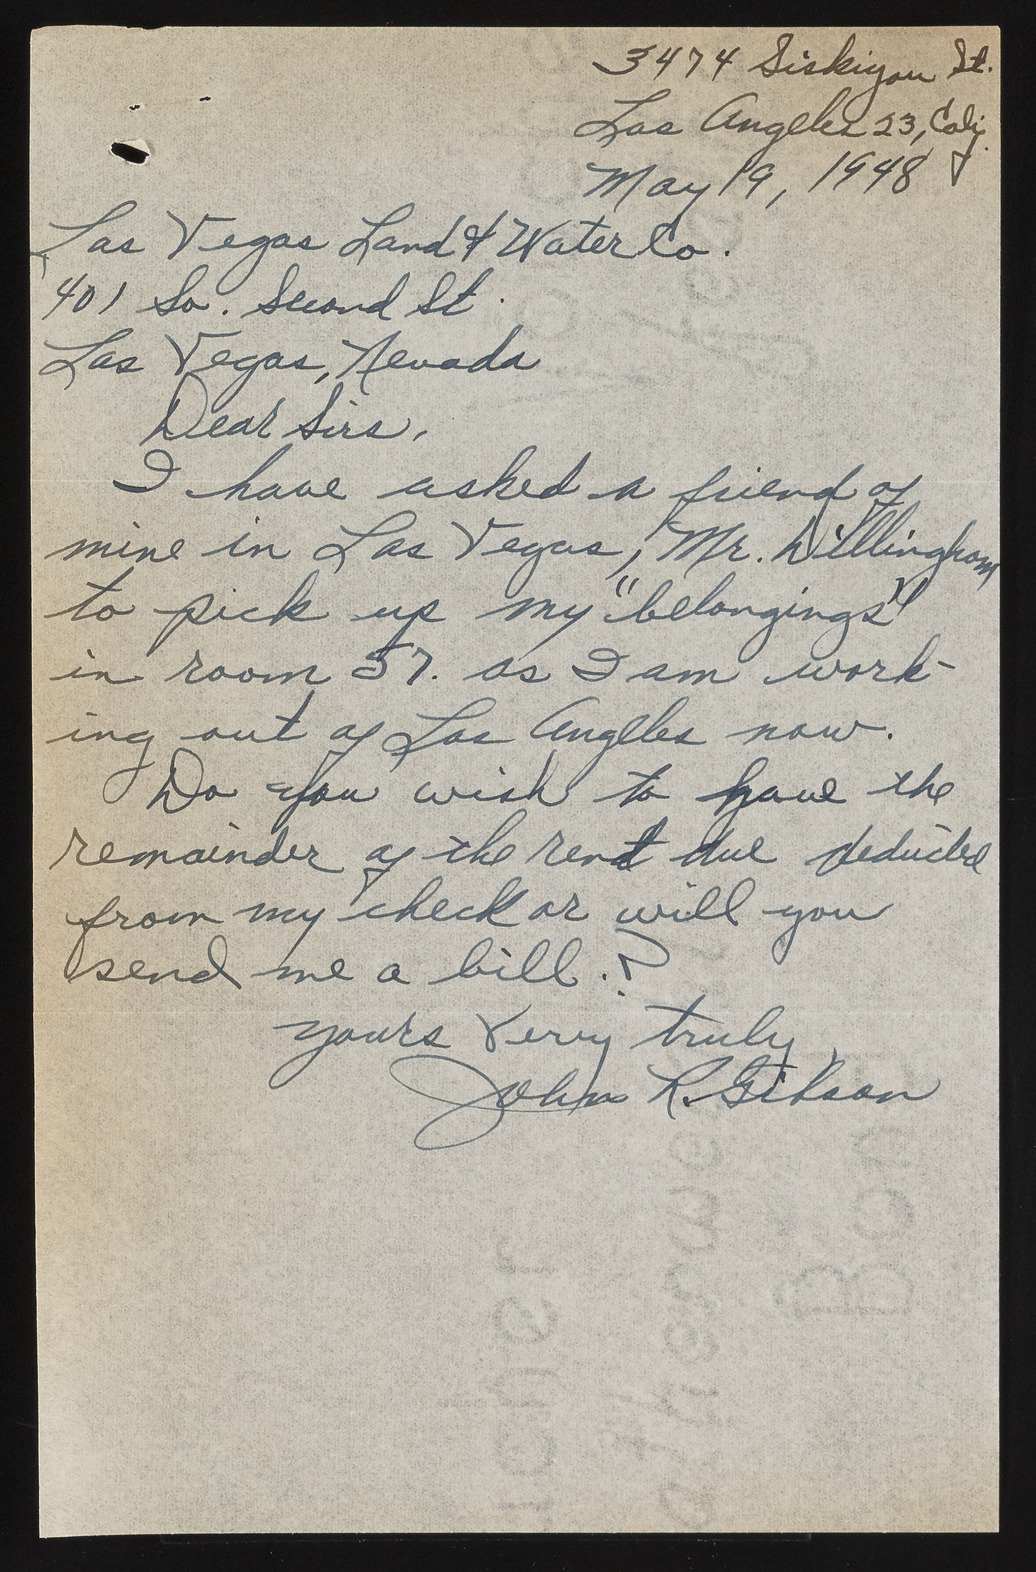 3474 Siskiyou St.
Los Angeles 23, Calif.
May 19, 1948
Las Vegas Land & Water Co.
401 So. Second St.
Las Vegas, Nevada
Dear Sirs,
I have asked a friend of
mine in Las Vegas, Mr. Dillingham
to pick up my "belongings"
in room 57. as I am work-
ing out of Los Angeles now.
Do you wish to have the
remainder of the rent due deducted
from my check or will you
send me a bill.?
Yours Very truly,
John R. Gibson